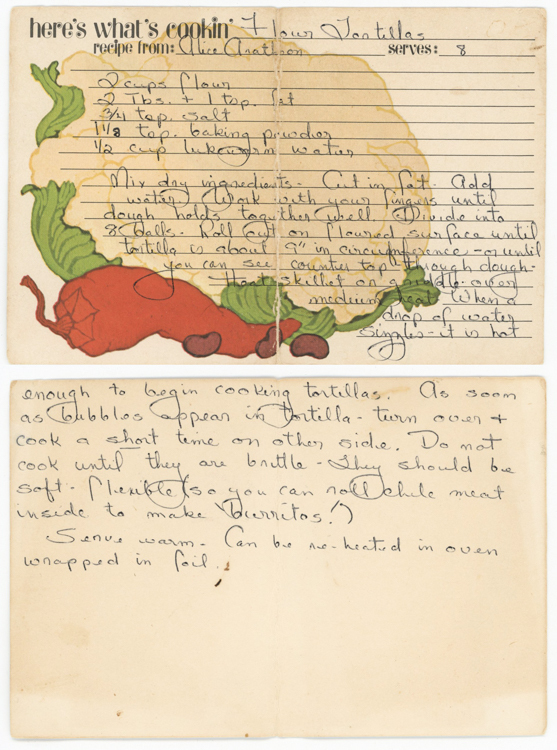 here's what's cookin' Flour Tortillas
recipe from: Alice serves: 8
2 cups flour
2 Tbs. + 1 tsp. fat
3/4 tsp. salt
1 1/2 tsp. baking powder
1/2 cup lukewarm water
Mix dry ingredients. Cut in fat. Add
water. Work with your fingers until
dough holds together well. Divide into
8 balls. Roll out on floured surface until
tortilla is about 9" in circumference - or until
you can see counter top through dough.
Heat skillet or griddle over
medium heat. When a
drop of water
sizzles - it is hot
enough to begin cooking tortillas. As soon
as bubbles appear in tortilla - turn over +
cook a short time on other side. Do not
cook until they are brittle - They should be
soft - flexible (so you can roll chile meat
inside to make burritos!)
Serve warm. Can be re-heated in oven
wrapped in foil.